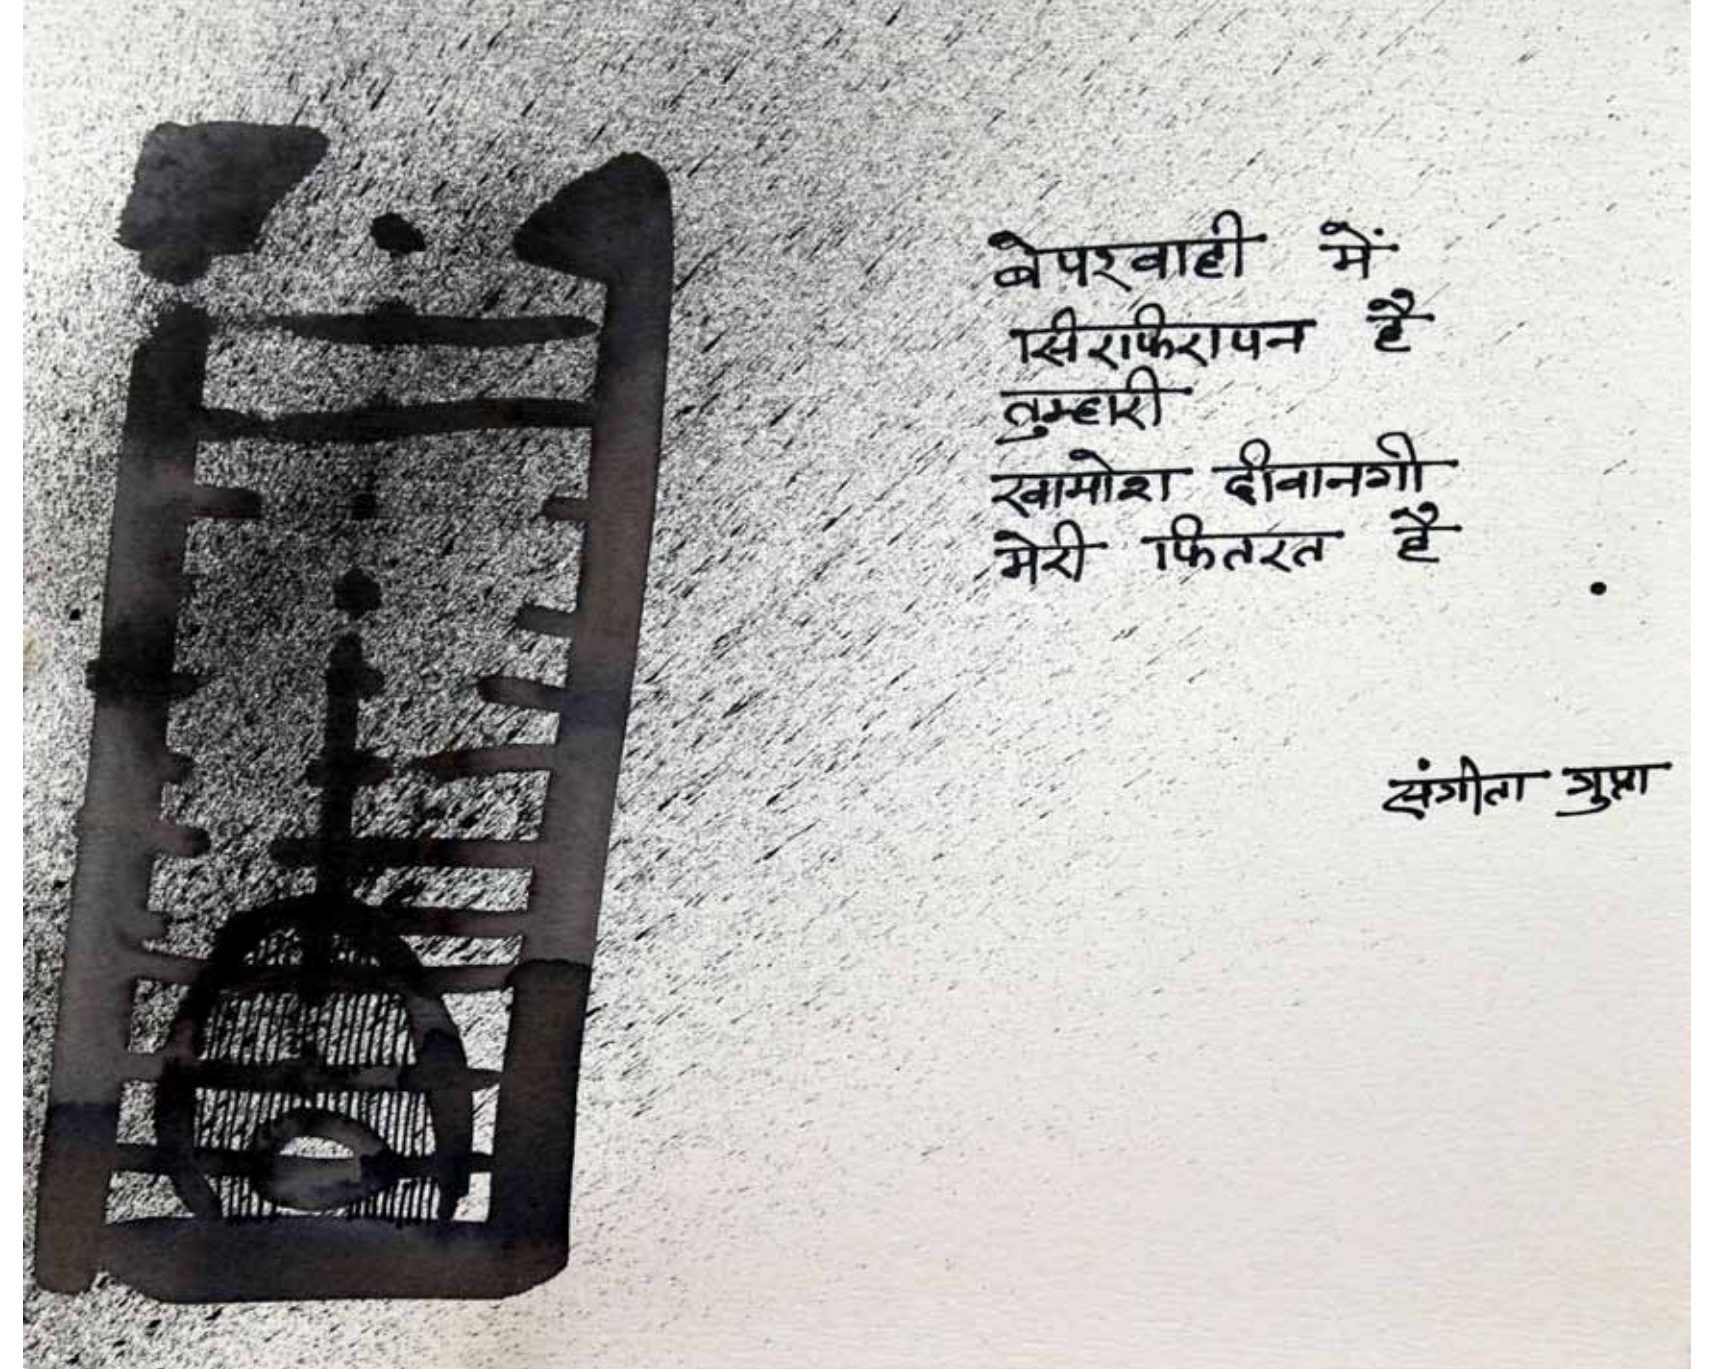 बेपरवाही में
सिरफिरापन है
तुम्हारी
खामोश दीवानगी
मेरी फितरत है
संगीता गुप्ता